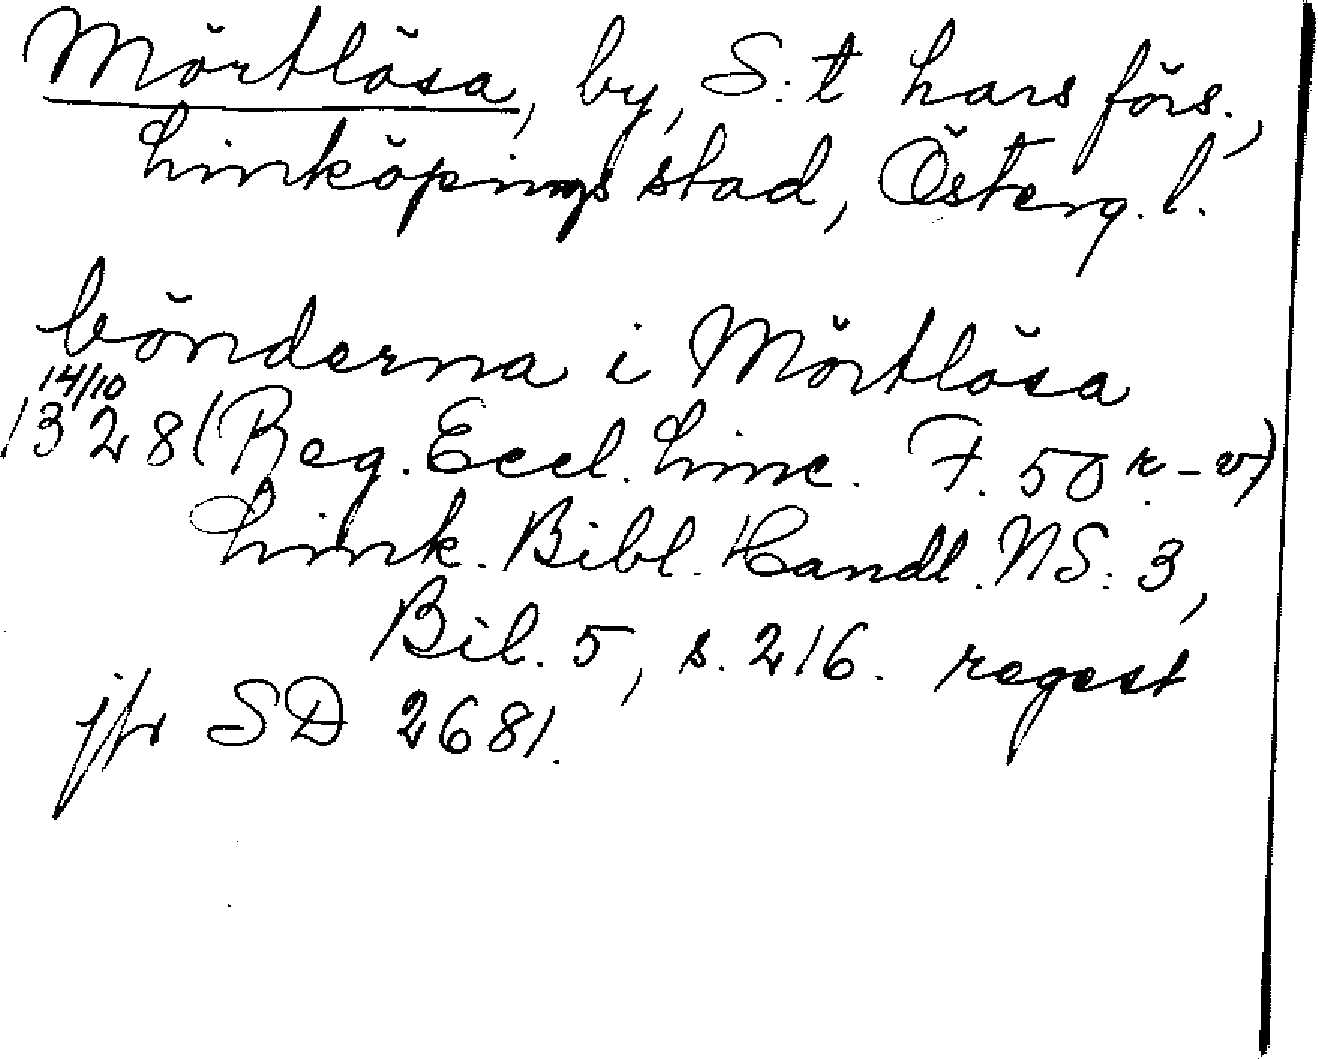 Mörtlösa, by, S:t Lars förs.,
Linköpings stad, Österg. l.
bönderna i Mörtlösa
14/10
1328 (Reg. Eccl. Linc. F. 50 r-v)
Link. Bibl. Handl. NS: 3,
Bil. 5, s. 216. regest
jfr SD 2681.